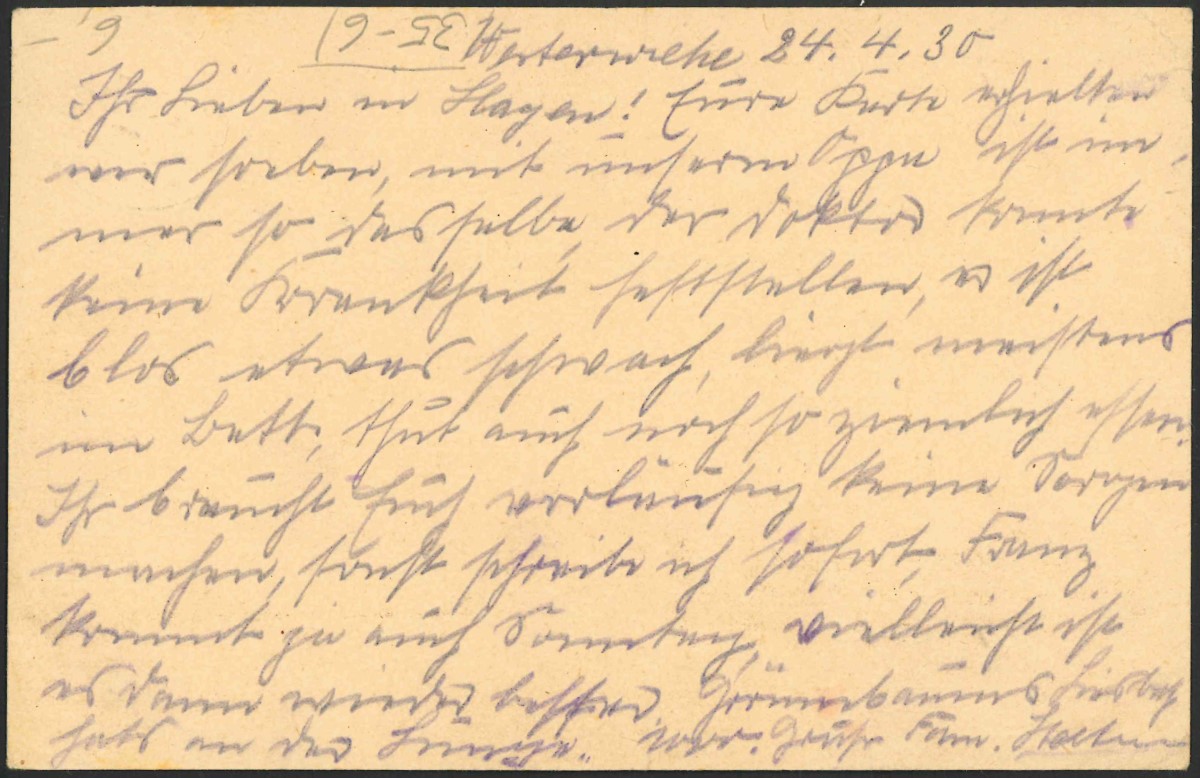 Westerwiehe 24. 4. 30
Ihr Lieben in Hagen! Eure Karte erhielten
wir soeben, mit unserm Oppa ist im
mer so dasselbe, der Doktor konnte
keine Krankheit feststellen, er ist
blos etwas schwach, liegt meistens
im Bett, thut auch noch so ziemlich essen.
Ihr braucht Euch vorläufig keine Sorgen
machen, sonst schreibe ich sofort, Franz
kommt ja auch Sonntag, vielleicht ist
es dann wieder besser. Grünebaums Liesbeth
hats an der Lunge. Gruß Fam.